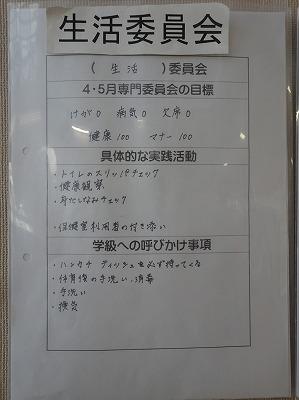 生活委員会
( 生活 )委員会
4・5月専門委員会の目標
けが0 病気0 欠席0
健康100 マナー100
具体的な実践活動
・トイレのスリッパチェック
・健康観察
・身だしなみチェック
・保健室利用者の付き添い
学級への呼びかけ事項
・ハンカチ ティッシュを必ず持ってくる
・体育後の手洗い、消毒
・手洗い
・換気